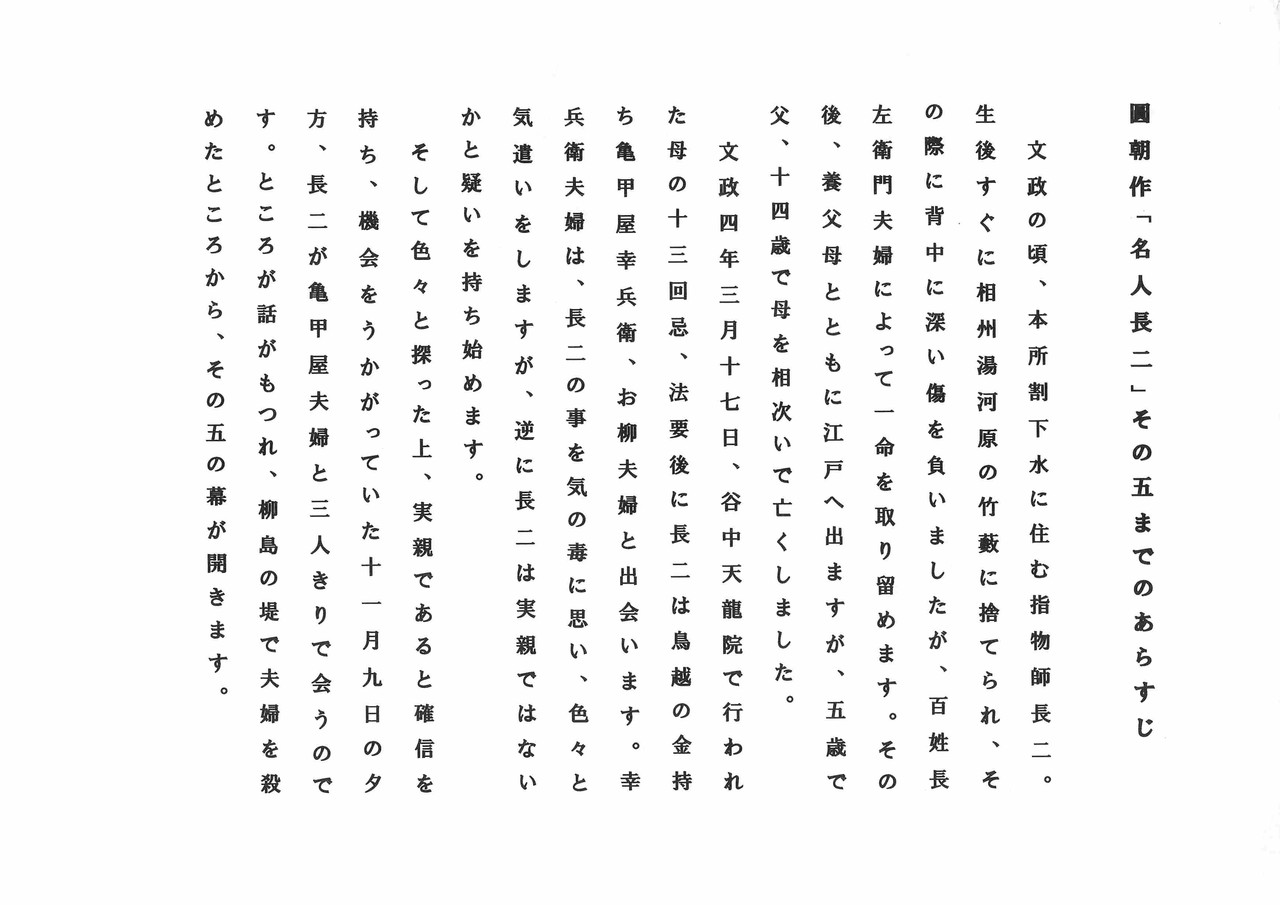 圓朝作「名人長二」その五までのあらすじ
文政の頃、本所割下水に住む指物師長二。
生後すぐに相州湯河原の竹藪に捨てられ、そ
の際に背中に深い傷を負いましたが、百姓長
左衛門夫婦によって一命を取り留めます。その
後、養父母とともに江戸へ出ますが、五歳で
父、十四歳で母を相次いで亡くしました。
文政四年三月十七日、谷中天龍院で行われ
た母の十三回忌、法要後に長二は鳥越の金持
ち亀甲屋幸兵衛、お柳夫婦と出会います。幸
兵衛夫婦は、長二の事を気の毒に思い、色々と
気遣いをしますが、逆に長二は実親ではない
かと疑いを持ち始めます。
そして色々と探った上、実親であると確信を
持ち、機会をうかがっていた十一月九日の夕
方、長二が亀甲屋夫婦と三人きりで会うので
す。ところが話がもつれ、柳島の堤で夫婦を殺
めたところから、その五の幕が開きます。